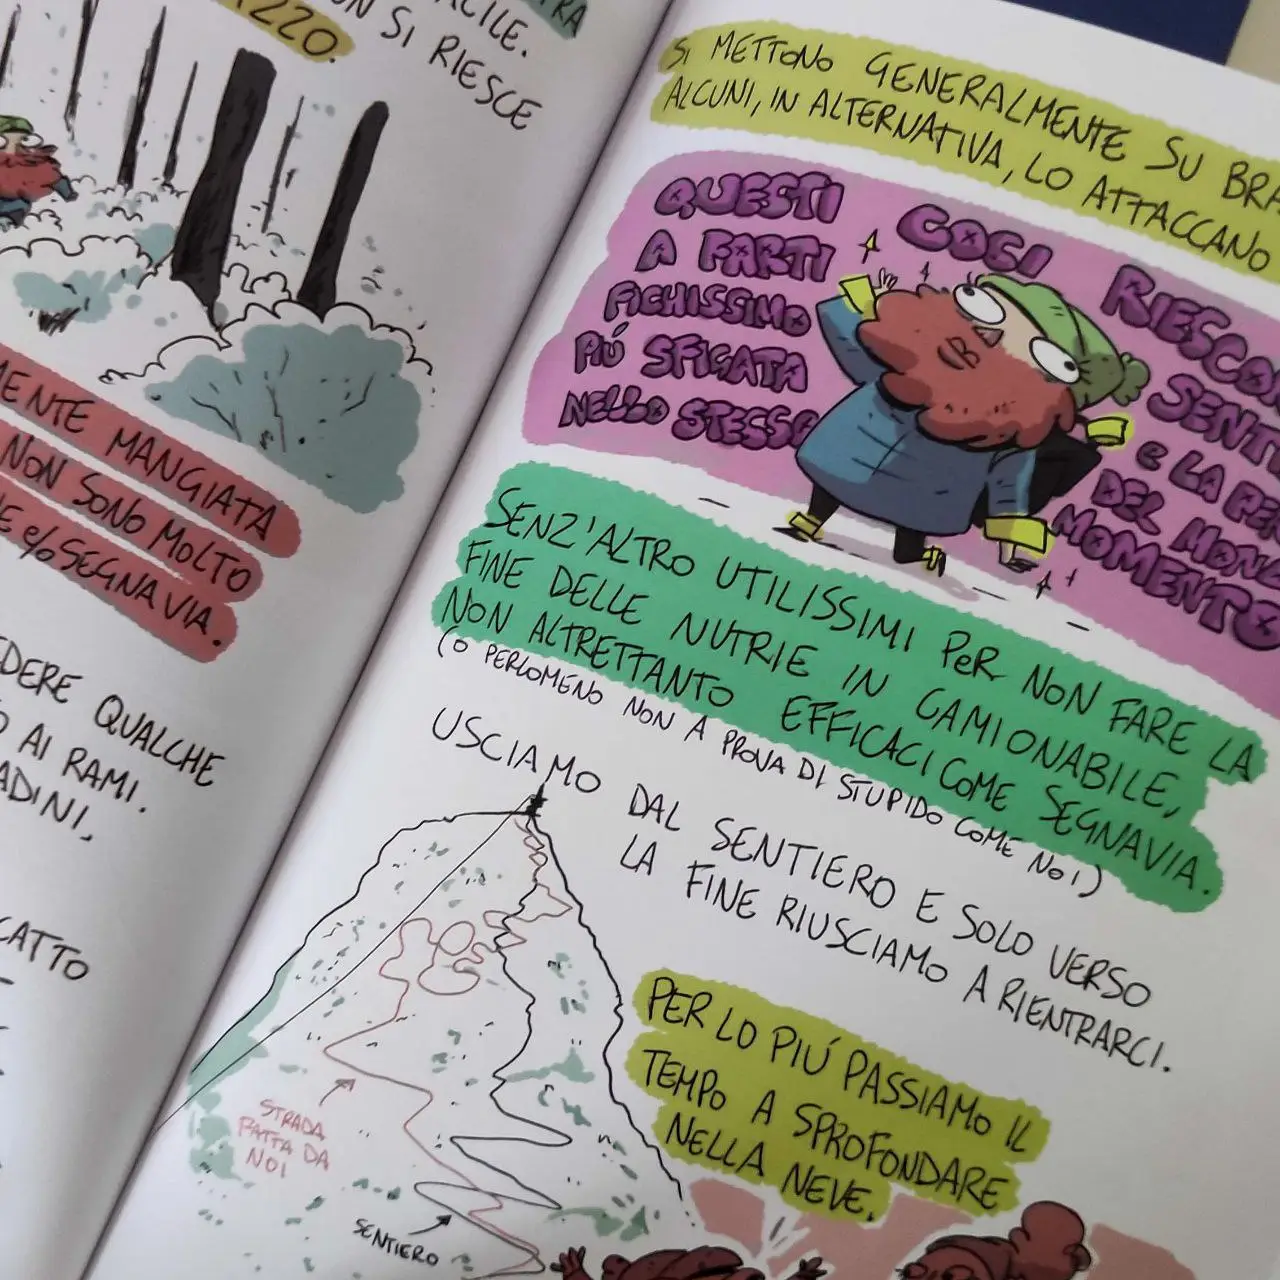 ACILE.
TRA
ZZO.
ON SI RIESCE
MENTE MANGIATA
NON SONO MOLTO
E e/o SEGNAVIA.
EDERE QUALCHE
O AI RAMI.
ADINI,
CATTO
SI METTONO GENERALMENTE SU BRA
ALCUNI, IN ALTERNATIVA, LO ATTACCANO
QUESTI COSI RIESCO
A FARTI SENTI
FICHISSIMO E LA PER
PIÚ SFIGATA DEL MOND
NELLO STESSO MOMENTO
SENZ'ALTRO UTILISSIMI PER NON FARE LA
FINE DELLE NUTRIE IN CAMIONABILE,
NON ALTRETTANTO EFFICACI COME SEGNAVIA.
(O PERLOMENO NON A PROVA DI STUPIDO COME NOI)
USCIAMO DAL SENTIERO E SOLO VERSO
LA FINE RIUSCIAMO A RIENTRARCI.
STRADA
FATTA DA
NOI
SENTIERO
PER LO PIÚ PASSIAMO IL
TEMPO A SPROFONDARE
NELLA NEVE.